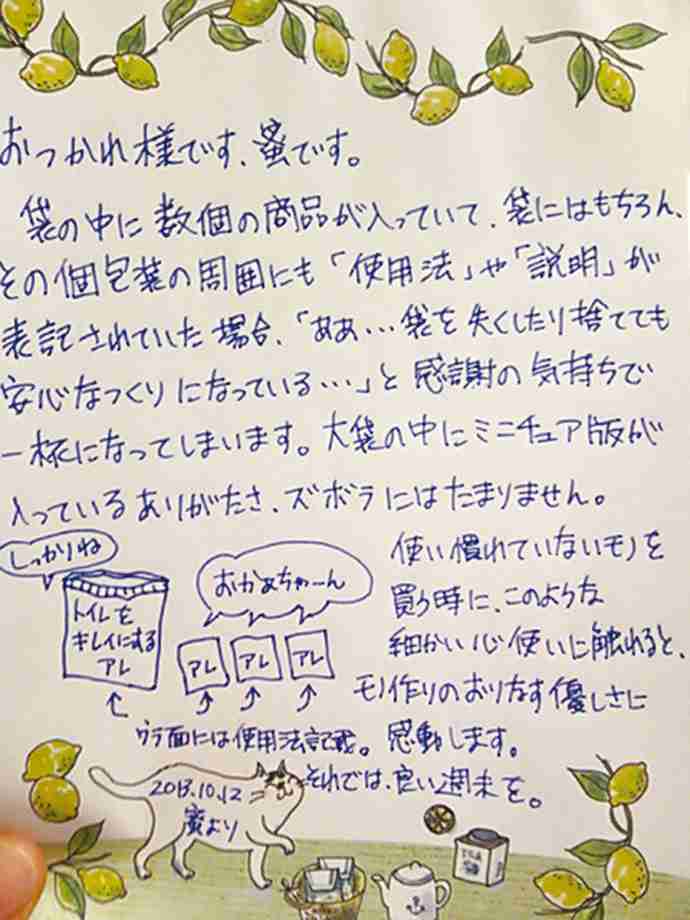 おつかれ様です、蚤です。
袋の中に数個の商品が入っていて、袋にはもちろん、
その個包装の周囲にも「使用法」や「説明」が
表記されていた場合、「ああ…袋を失くしたり捨てても
安心なつくりになっている…」と感謝の気持ちで
一杯になってしまいます。大袋の中にミニチュア版が
入っているありがたさ、ズボラにはたまりません。
しっかりね
トイレを
キレイにする
アレ
おかあちゃーん
アレ アレ アレ
ウラ面には使用法記載。
使い慣れていないモノを
買う時に、このような
細かい心使いに触れると、
モノ作りのおりなす優しさに
感動します。
それでは、良い週末を。
2013.10.12
蚤より